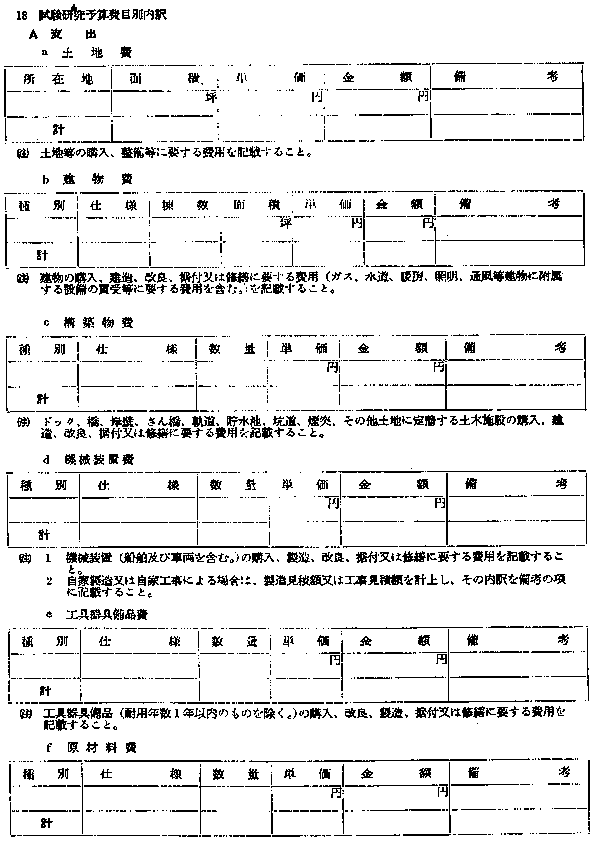 18 試験研究予算費目別内訳
A 支出
a 土地費
所在地 面積 単価 金額 備考
坪 円 円
計
(注) 土地等の購入、整備等に要する費用を記載すること。
b 建物費
種別 仕様 棟数 面積 単価 金額 備考
坪 円 円
計
(注) 建物の購入、建造、改良、据付又は修繕に要する費用(ガス、水道、暖房、照明、通風等建物に附属
する設備の買受等に要する費用を含む。)を記載すること。
c 構築物費
種別 仕様 数量 単価 金額 備考
円 円
計
(注) ドック、橋、岸壁、さん橋、軌道、貯水池、坑道、煙突、その他土地に定着する土木施設の購入、建
造、改良、据付又は修繕に要する費用を記載すること。
d 機械装置費
種別 仕様 数量 単価 金額 備考
円 円
計
(注) 1 機械装置(船舶及び車両を含む。)の購入、製造、改良、据付又は修繕に要する費用を記載するこ
と。
2 自家製造又は自家工事による場合は、製造見積額又は工事見積額を計上し、その内訳を備考の項
に記載すること。
e 工具器具備品費
種別 仕様 数量 単価 金額 備考
円 円
計
(注) 工具器具備品(耐用年数1年以内のものを除く。)の購入、改良、製造、据付又は修繕に要する費用を
記載すること。
f 原材料費
種別 仕様 数量 単価 金額 備考
円 円
計